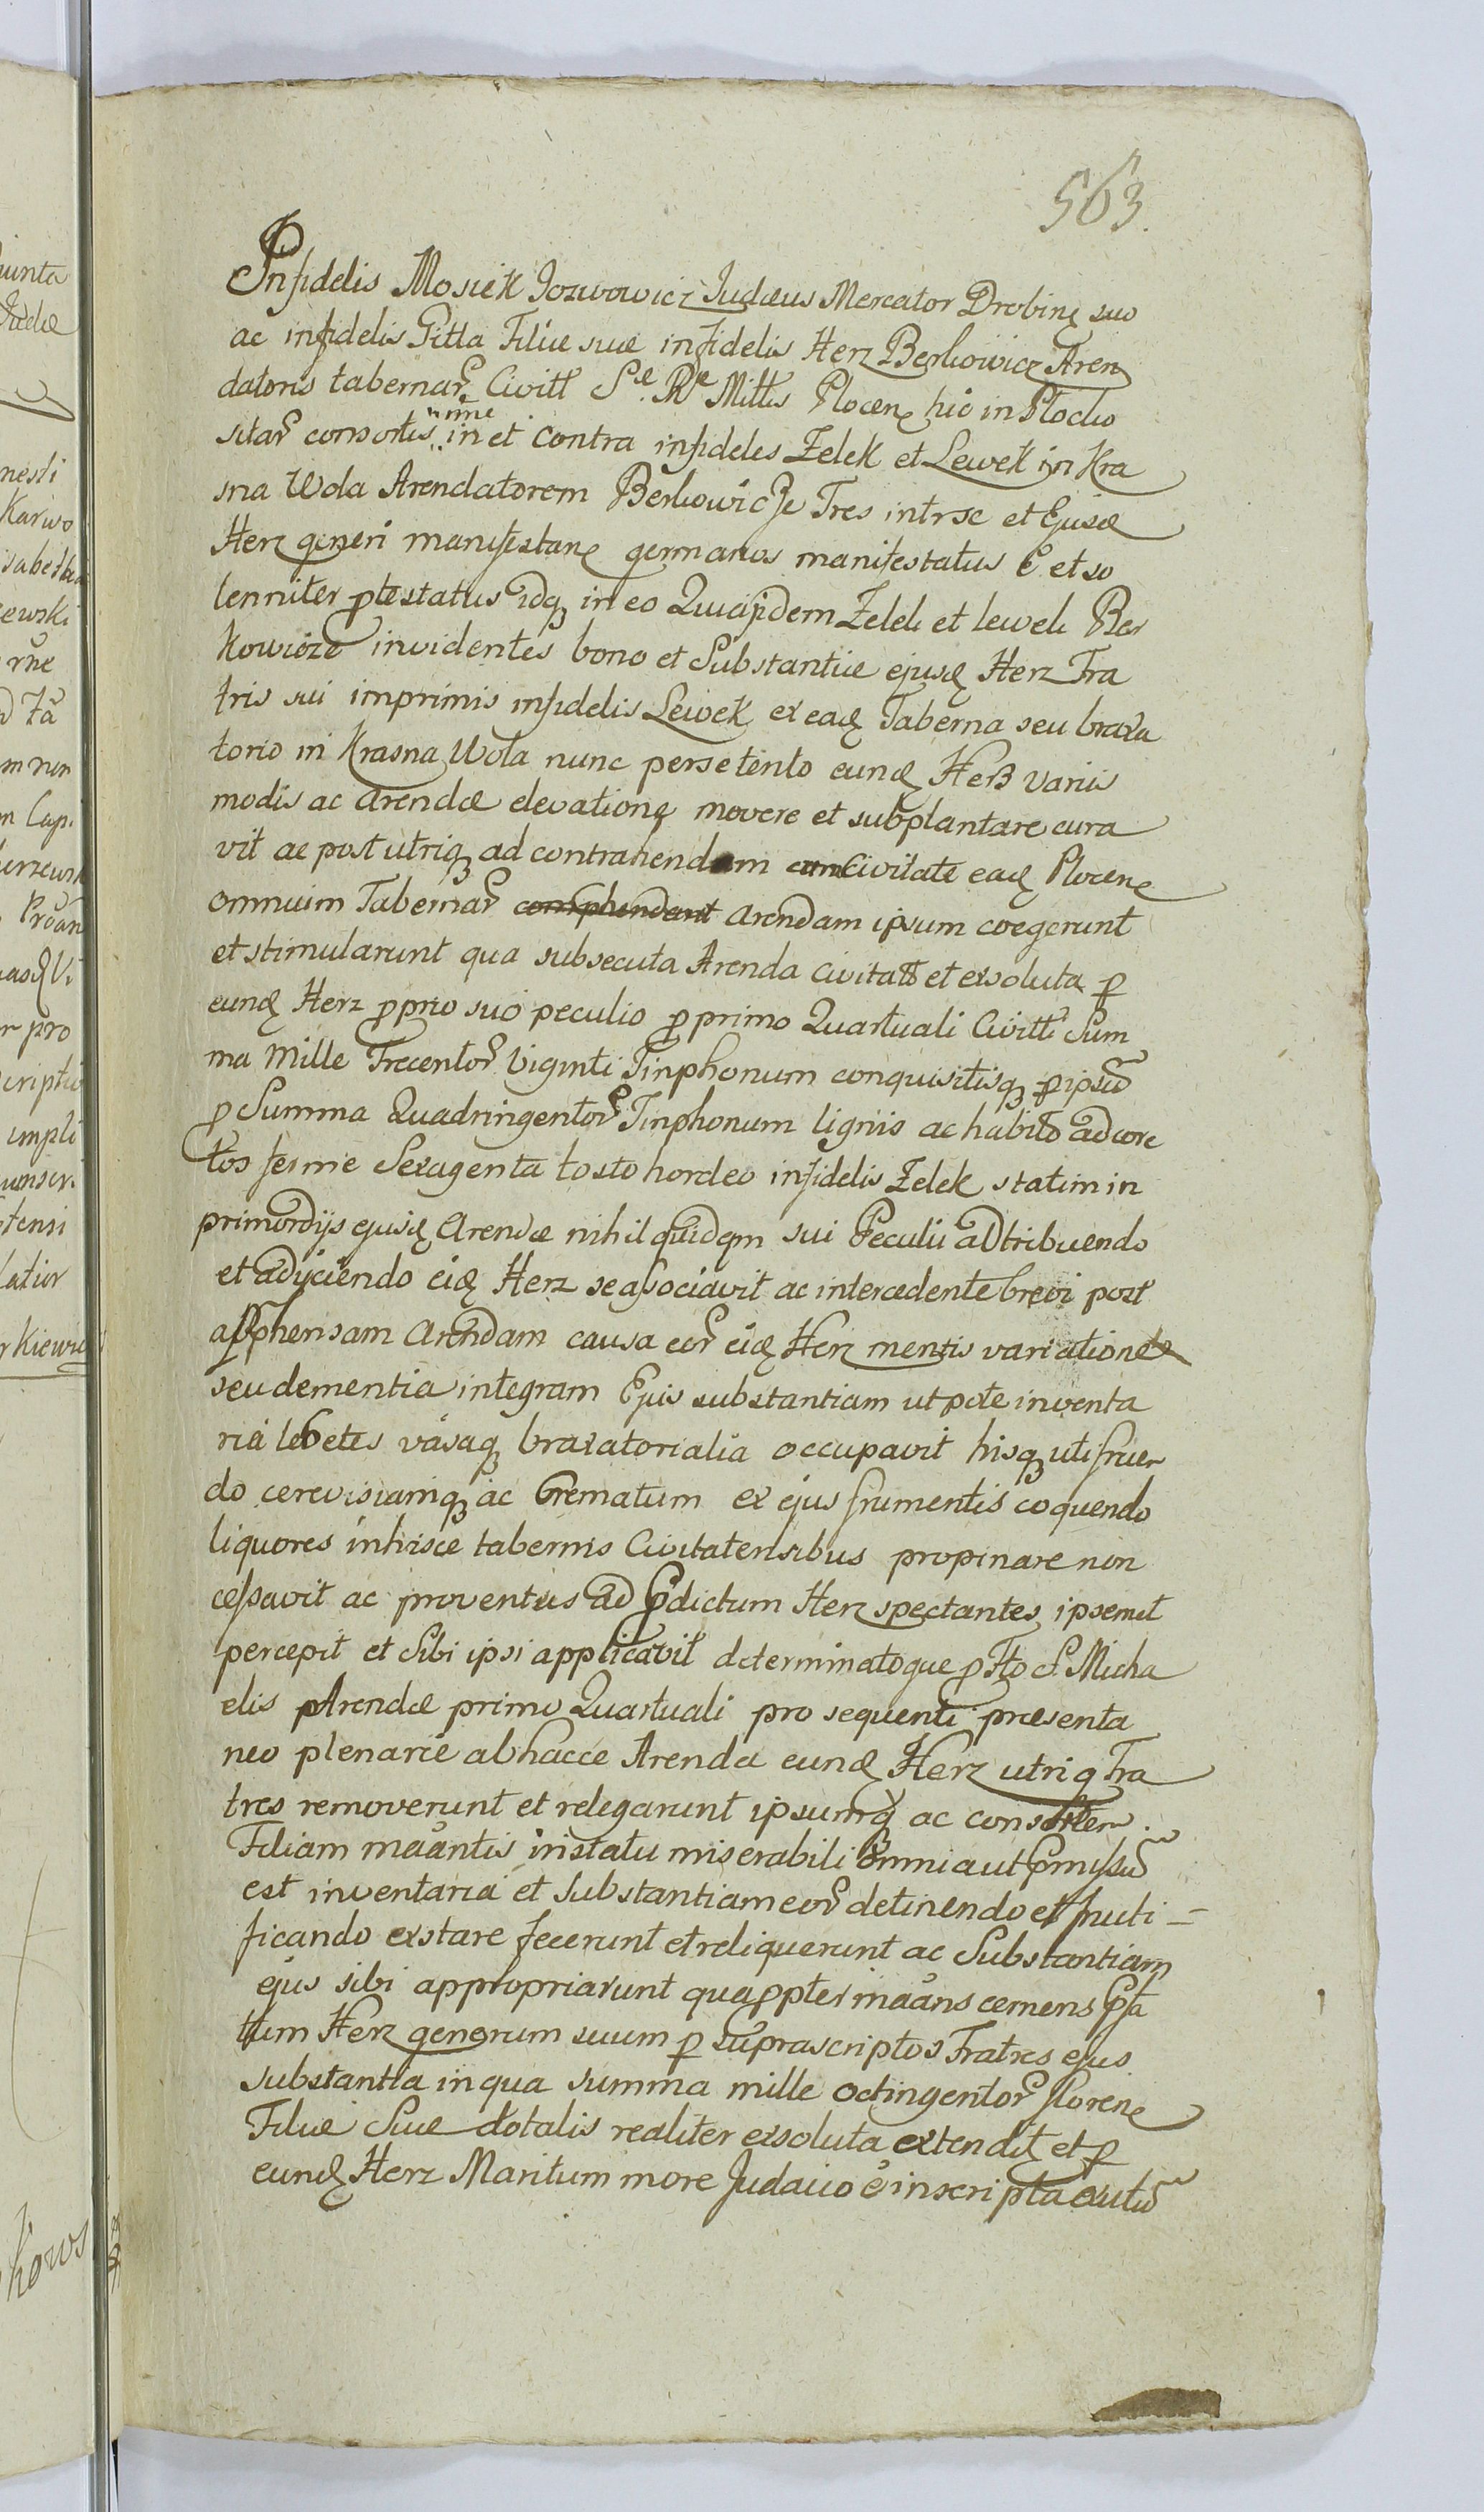 563.
Infidelis Mosiek Jozwowicz Judæus Mercator Drobinę suo
ac infidelis Gitla Filiæ suæ infidelis Herz Berkowicz Aren
datoris tabernar Civitt Sæ Ræ Mittis Plocenę hic in Plocko
sitar consortis nine in et contra infideles Zelek et Lewek in Kra
sna Wola Arendatorem Berkowicze Tres intr se et Ejusd
Herz generi manifestanę germanos manifestatus e et so
lenniter ptestatus idq in eo Quia jidem Zelek et Lewek Ber
kowicze invidentes bono et Substantiæ ejusd Herz Fra
tris sui imprimis infidelis Lewek ex ead Taberna seu braxa
torio in Krasna Wola nunc per se tento eund Herz variis
modis ac Arendæ elevatione movere et subplantare cura
vit ac post utriq ad contrahendam cum Civitate ead Plocenę
omnium Tabernar comphendant Arendam ipsum coegerunt
et stimularunt qua subsecuta Arenda Civitatt et exsoluta p
eund Herz pprio suo peculio p primo Quartuali Civitti Sum
ma Mille Trecentor Viginti Tinphonum conquisitisq p ipsu
p Summa Quadringentor Tinphonum lignis ac habito ad core
tos ferme Sexagenta tosto hordeo infidelis Zelek statim in
primordijs ejusd Arendæ nihil quidem sui Peculii adtribuendo
et adijciendo eid Herz se associavit ac intercedente brevi post
apphensam Arendam causa eor eid Herz mentis variatione
seu dementia integram Ejus substantiam utpote inventa
ria lebetes vasaq braxatorialia occupavit hisq uti fruen
do cerevisiamq ac Crematum ex ejus frumentis coquendo
liquores in hisce tabernis Civitatensibus propinare non
cessavit ac proventus ad pdictum Herz spectantes ipsemet
percepit et Sibi ipsi applicavit determinatoque p Fto S. Micha
elis Arendæ primo Quartuali pro sequenti præsenta
neo plenarie ab hacce Arenda eund Herz utriq Fra
tres removerunt et relegarunt ipsumq ac consortem
Filiam maantis in statu miserabili omnia ut pmissu
est inventaria et Substantiam eor detinendo et fructi
ficando exstare fecerunt et reliquerunt ac Substantiam
ejus sibi appropriarunt quappter maans cernens psa
tum Herz generum suum p suprascriptos Fratres ejus
substantia in qua summa mille octingentor florenę
Filiæ Suæ dotalis realiter exsoluta extendit et p
eund Herz Maritum more Judaico e inscripta exutu